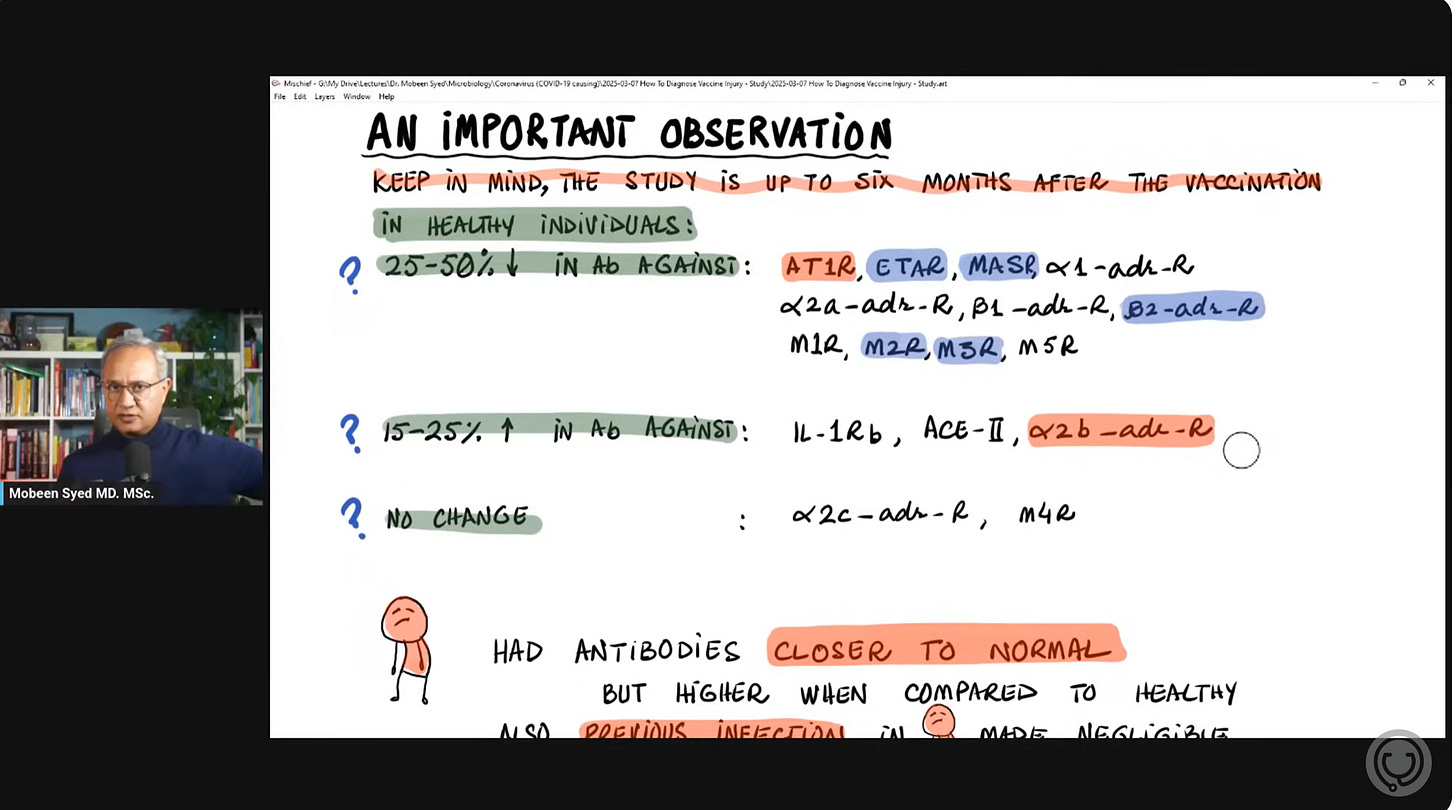 Mischief - G:\My Drive\Lectures\Dr. Mobeen Syed\Microbiology\Coronavirus (COVID-19 causing)\2025-03-07 How To Diagnose Vaccine Injury - Study\2025-03-07 How To Diagnose Vaccine Injury - Study.art
File Edit Layers Window Help
AN IMPORTANT OBSERVATION
KEEP IN MIND, THE STUDY IS UP TO SIX MONTHS AFTER THE VACCINATION
IN HEALTHY INDIVIDUALS:
? 25-50% ↓ IN Ab AGAINST: AT1R, ETAR, MASR, α1-adr-R
α2a-adr-R, β1-adr-R, β2-adr-R
M1R, M2R, M3R, M5R
? 15-25% ↑ IN Ab AGAINST: IL-1Rb, ACE-II, α2b-adr-R
? NO CHANGE : α2c-adr-R, M4R
HAD ANTIBODIES CLOSER TO NORMAL
BUT HIGHER WHEN COMPARED TO HEALTHY
ALSO PREVIOUS INFECTION IN MADE NEGLIGIBLE
Mobeen Syed MD. MSc.